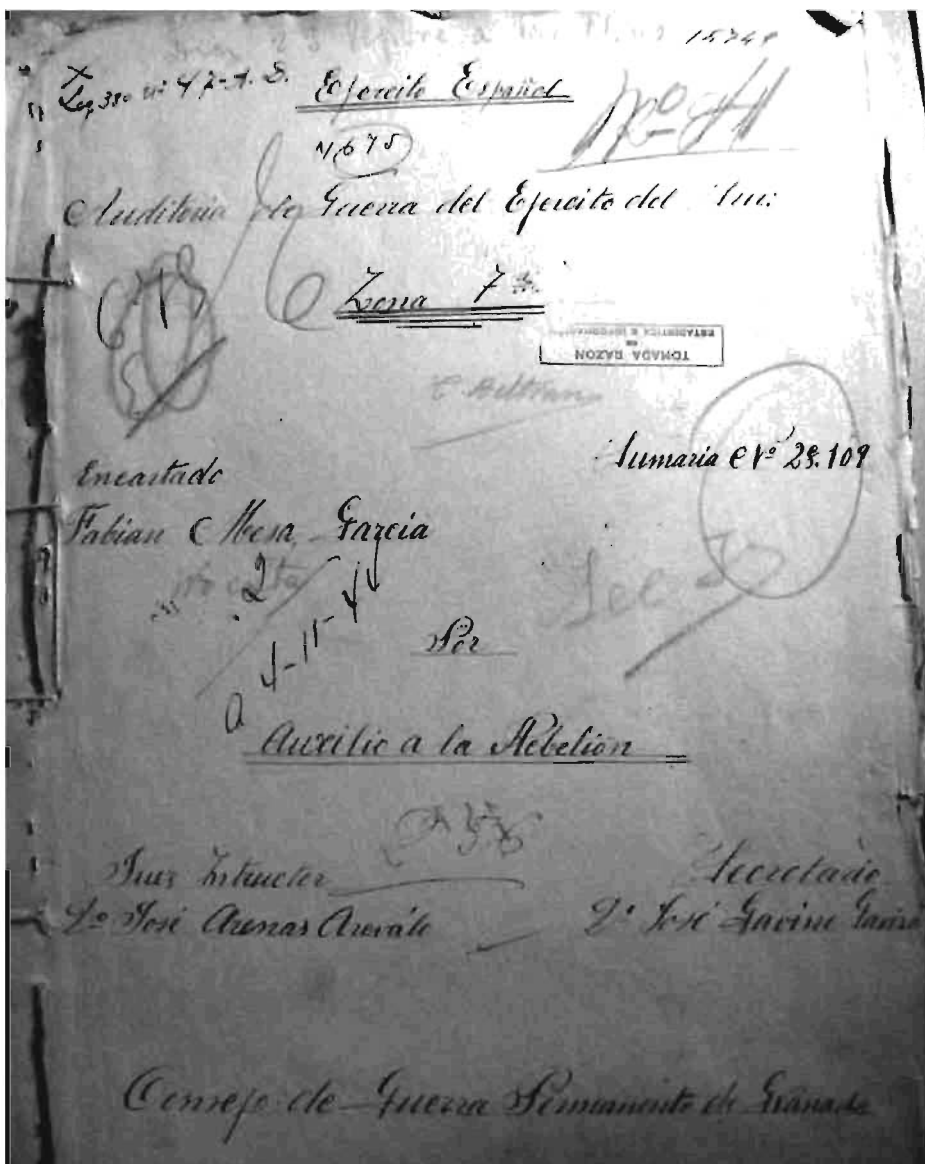 15749
Leg 380 nº 47-A.S.
Ejercito Español
4675
Nº 41
Auditoria de Guerra del Ejercito del Sur.
Zona 7ª
TOMADA RAZON
ESTADISTICA E INFORMACION
C Beltran
Sumaria Nº 29.109
Encartado
Fabian Mesa Garcia
2
a 4-11-4
Por
Auxilio a la Rebelión
Juez Intructor
Dº José Arenas Arevalo
Secretario
Dº José Gavira Gavira
Consejo de Guerra Permanente de Granada